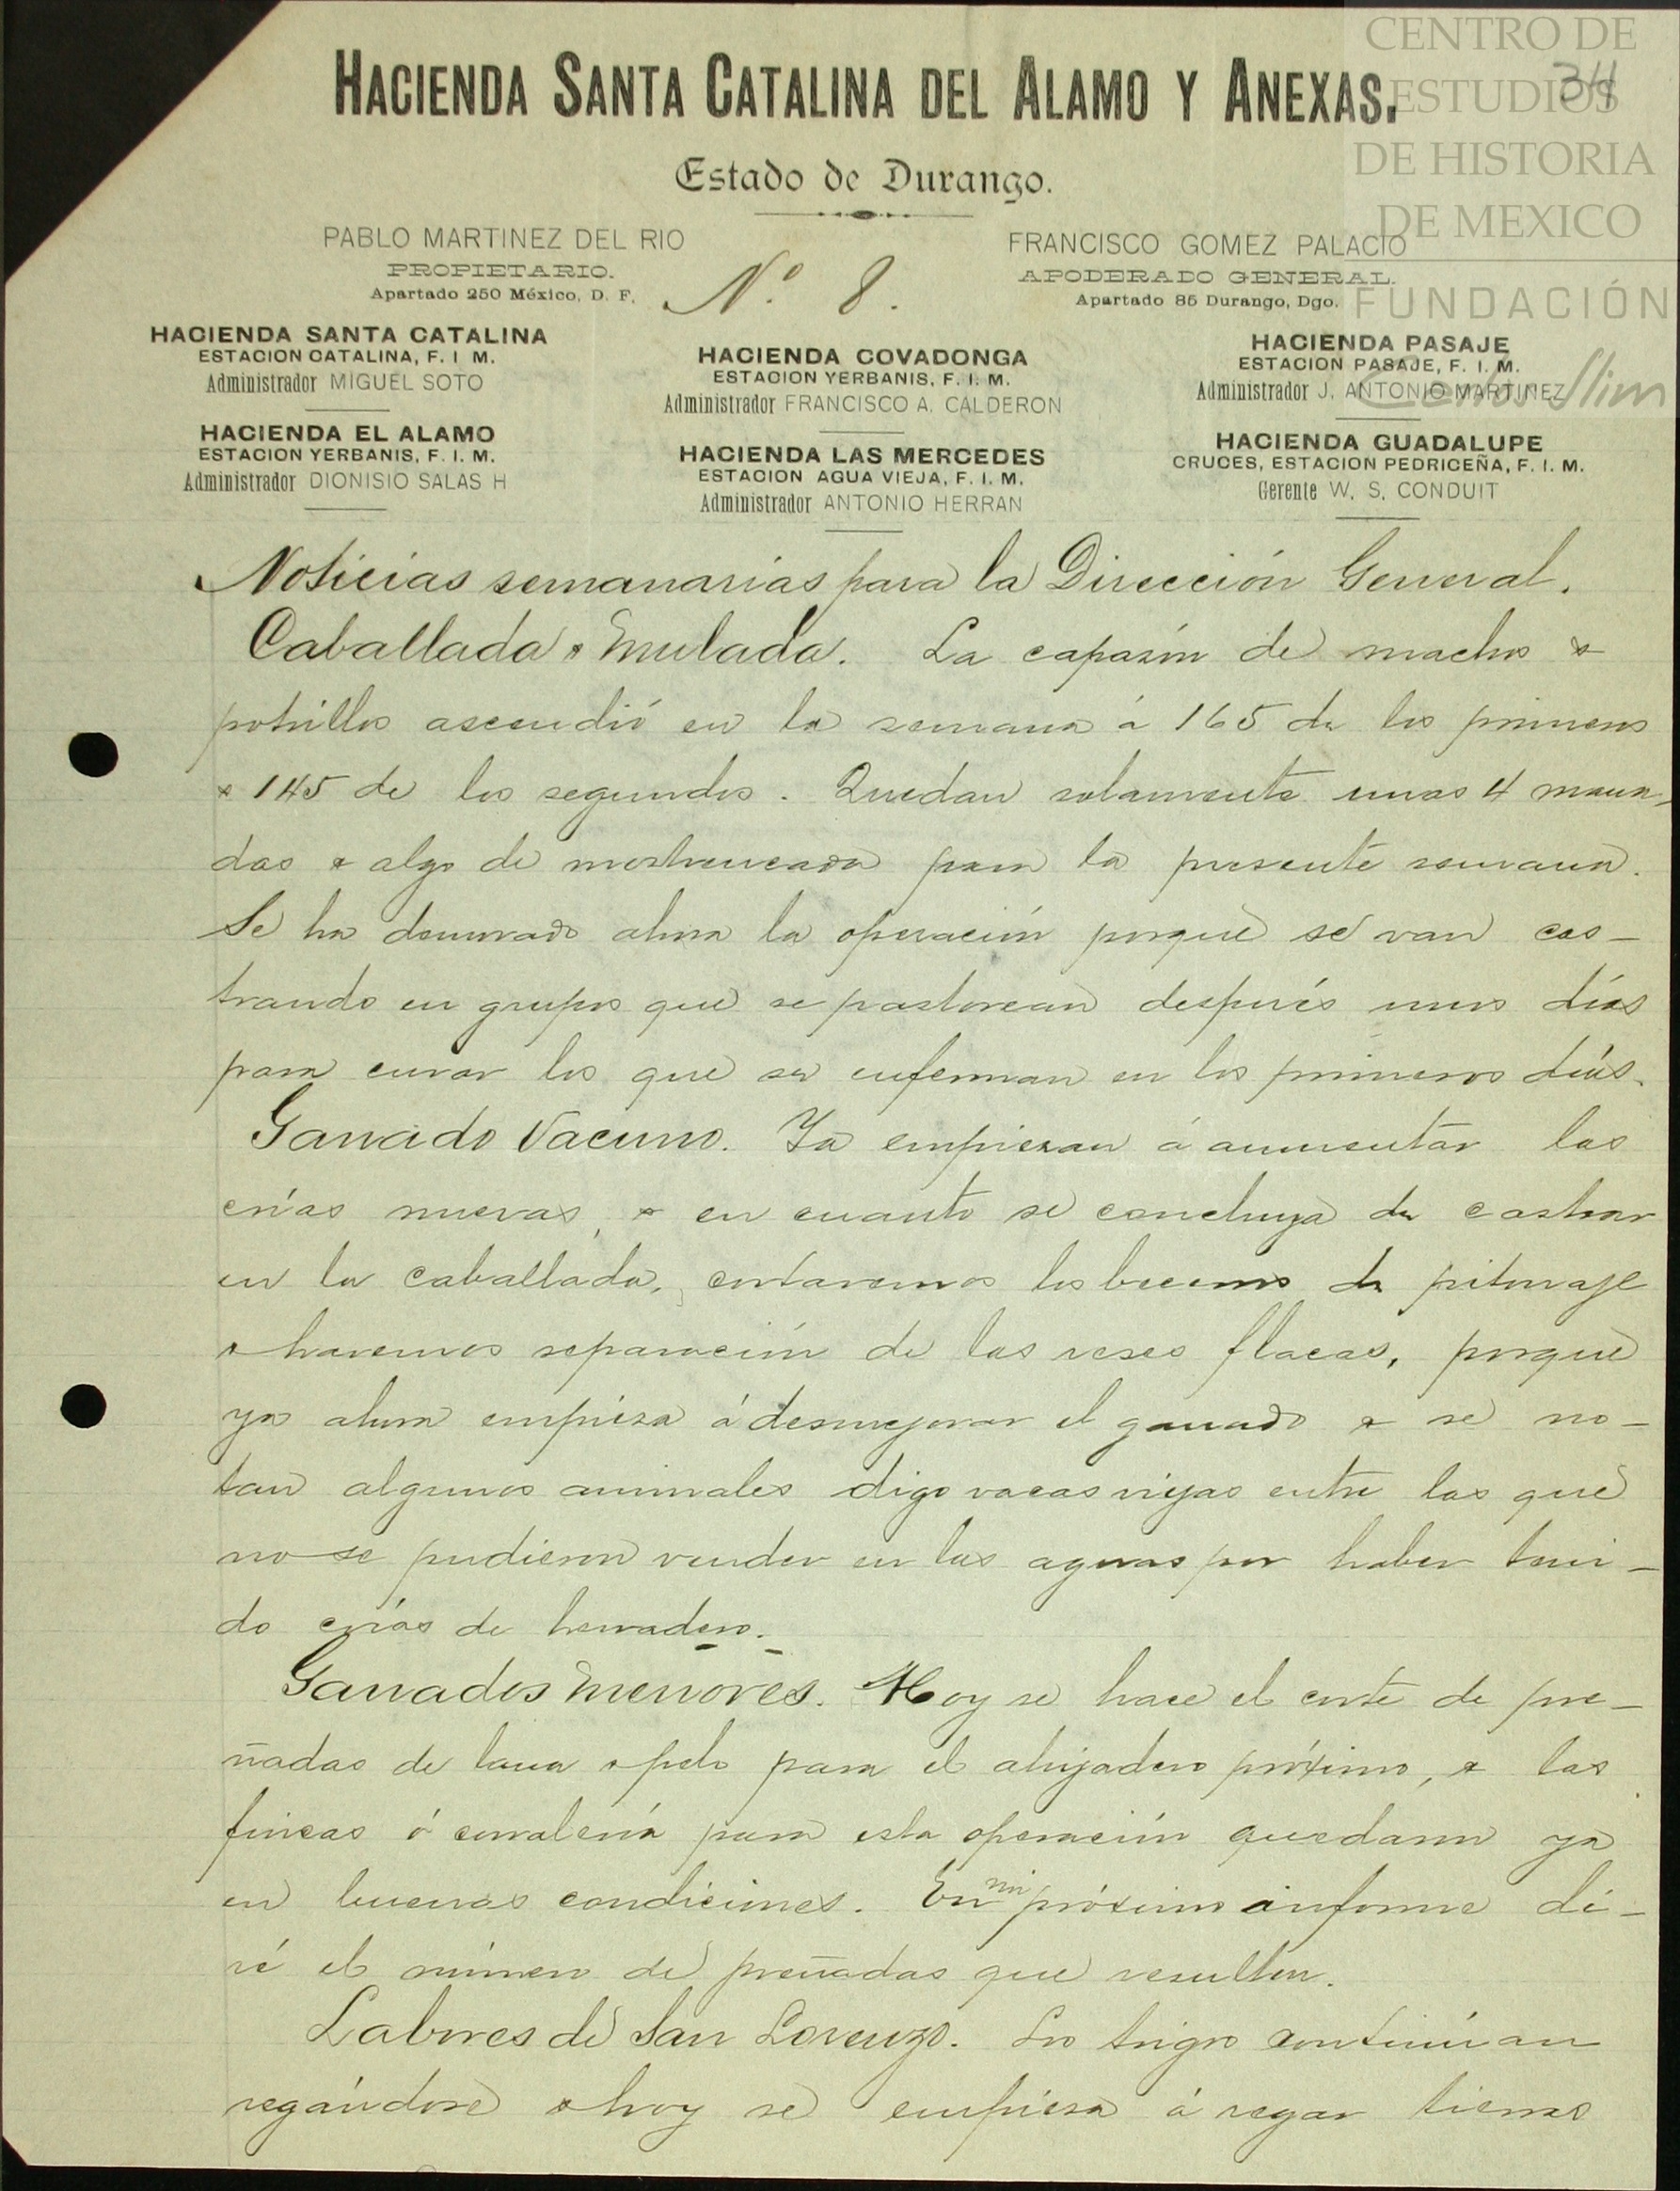 CENTRO DE
ESTUDIOS
DE HISTORIA
DE MEXICO
FUNDACIÓN
Carlos Slim
34
HACIENDA SANTA CATALINA DEL ALAMO Y ANEXAS.
Estado de Durango.
PABLO MARTINEZ DEL RIO
PROPIETARIO.
Apartado 250 México, D. F.
Nº 8.
FRANCISCO GOMEZ PALACIO
APODERADO GENERAL.
Apartado 85 Durango, Dgo.
HACIENDA SANTA CATALINA
ESTACION CATALINA, F. I M.
Administrador MIGUEL SOTO
HACIENDA EL ALAMO
ESTACION YERBANIS, F. I. M.
Administrador DIONISIO SALAS H
HACIENDA COVADONGA
ESTACION YERBANIS, F. I. M.
Administrador FRANCISCO A. CALDERON
HACIENDA LAS MERCEDES
ESTACION AGUA VIEJA, F. I. M.
Administrador ANTONIO HERRAN
HACIENDA PASAJE
ESTACION PASAJE, F. I. M.
Administrador J. ANTONIO MARTINEZ
HACIENDA GUADALUPE
CRUCES, ESTACION PEDRICEÑA, F. I. M.
Gerente W. S. CONDUIT
Noticias semanarias para la Dirección General.
Caballada & mulada. La capazón de machos &
potrillos ascendió en la semana á 165 de los primeros
& 145 de los segundos. Quedan solamente unas 4 mana-
das & algo de mostrencada para la presente semana.
Se ha demorado ahora la operación porque se van cas-
trando en grupos que se pastorean después unos días
para curar los que se enferman en los primeros días.
Ganado Vacuno. Ya empiezan á aumentar las
crías nuevas, & en cuanto se concluya de castrar
en la caballada, cortaremos los becerros de pitonaje
& haremos separación de las reses flacas, porque
ya ahora empieza á desmejorar el ganado & se no-
tan algunos animales digo vacas viejas entre las que
no se pudieron vender en las aguas por haber teni-
do crías de herradero.
Ganados menores. Hoy se hace el corte de pre-
ñadas de lana & pelo para el ahijadero próximo, & las
fincas ó corralería para esta operación quedaron ya
en buenas condiciones. En mi próximo informe di-
ré el número de preñadas que resulten.
Labores de San Lorenzo. Los trigos continúan
regándose & hoy se empieza á regar tierras